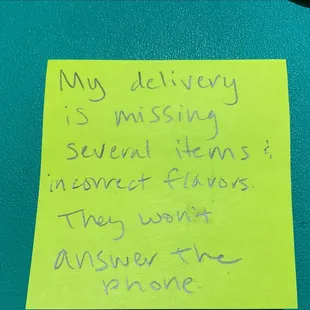 My delivery
is missing
several items &
incorrect flavors.
They won't
answer the
phone.